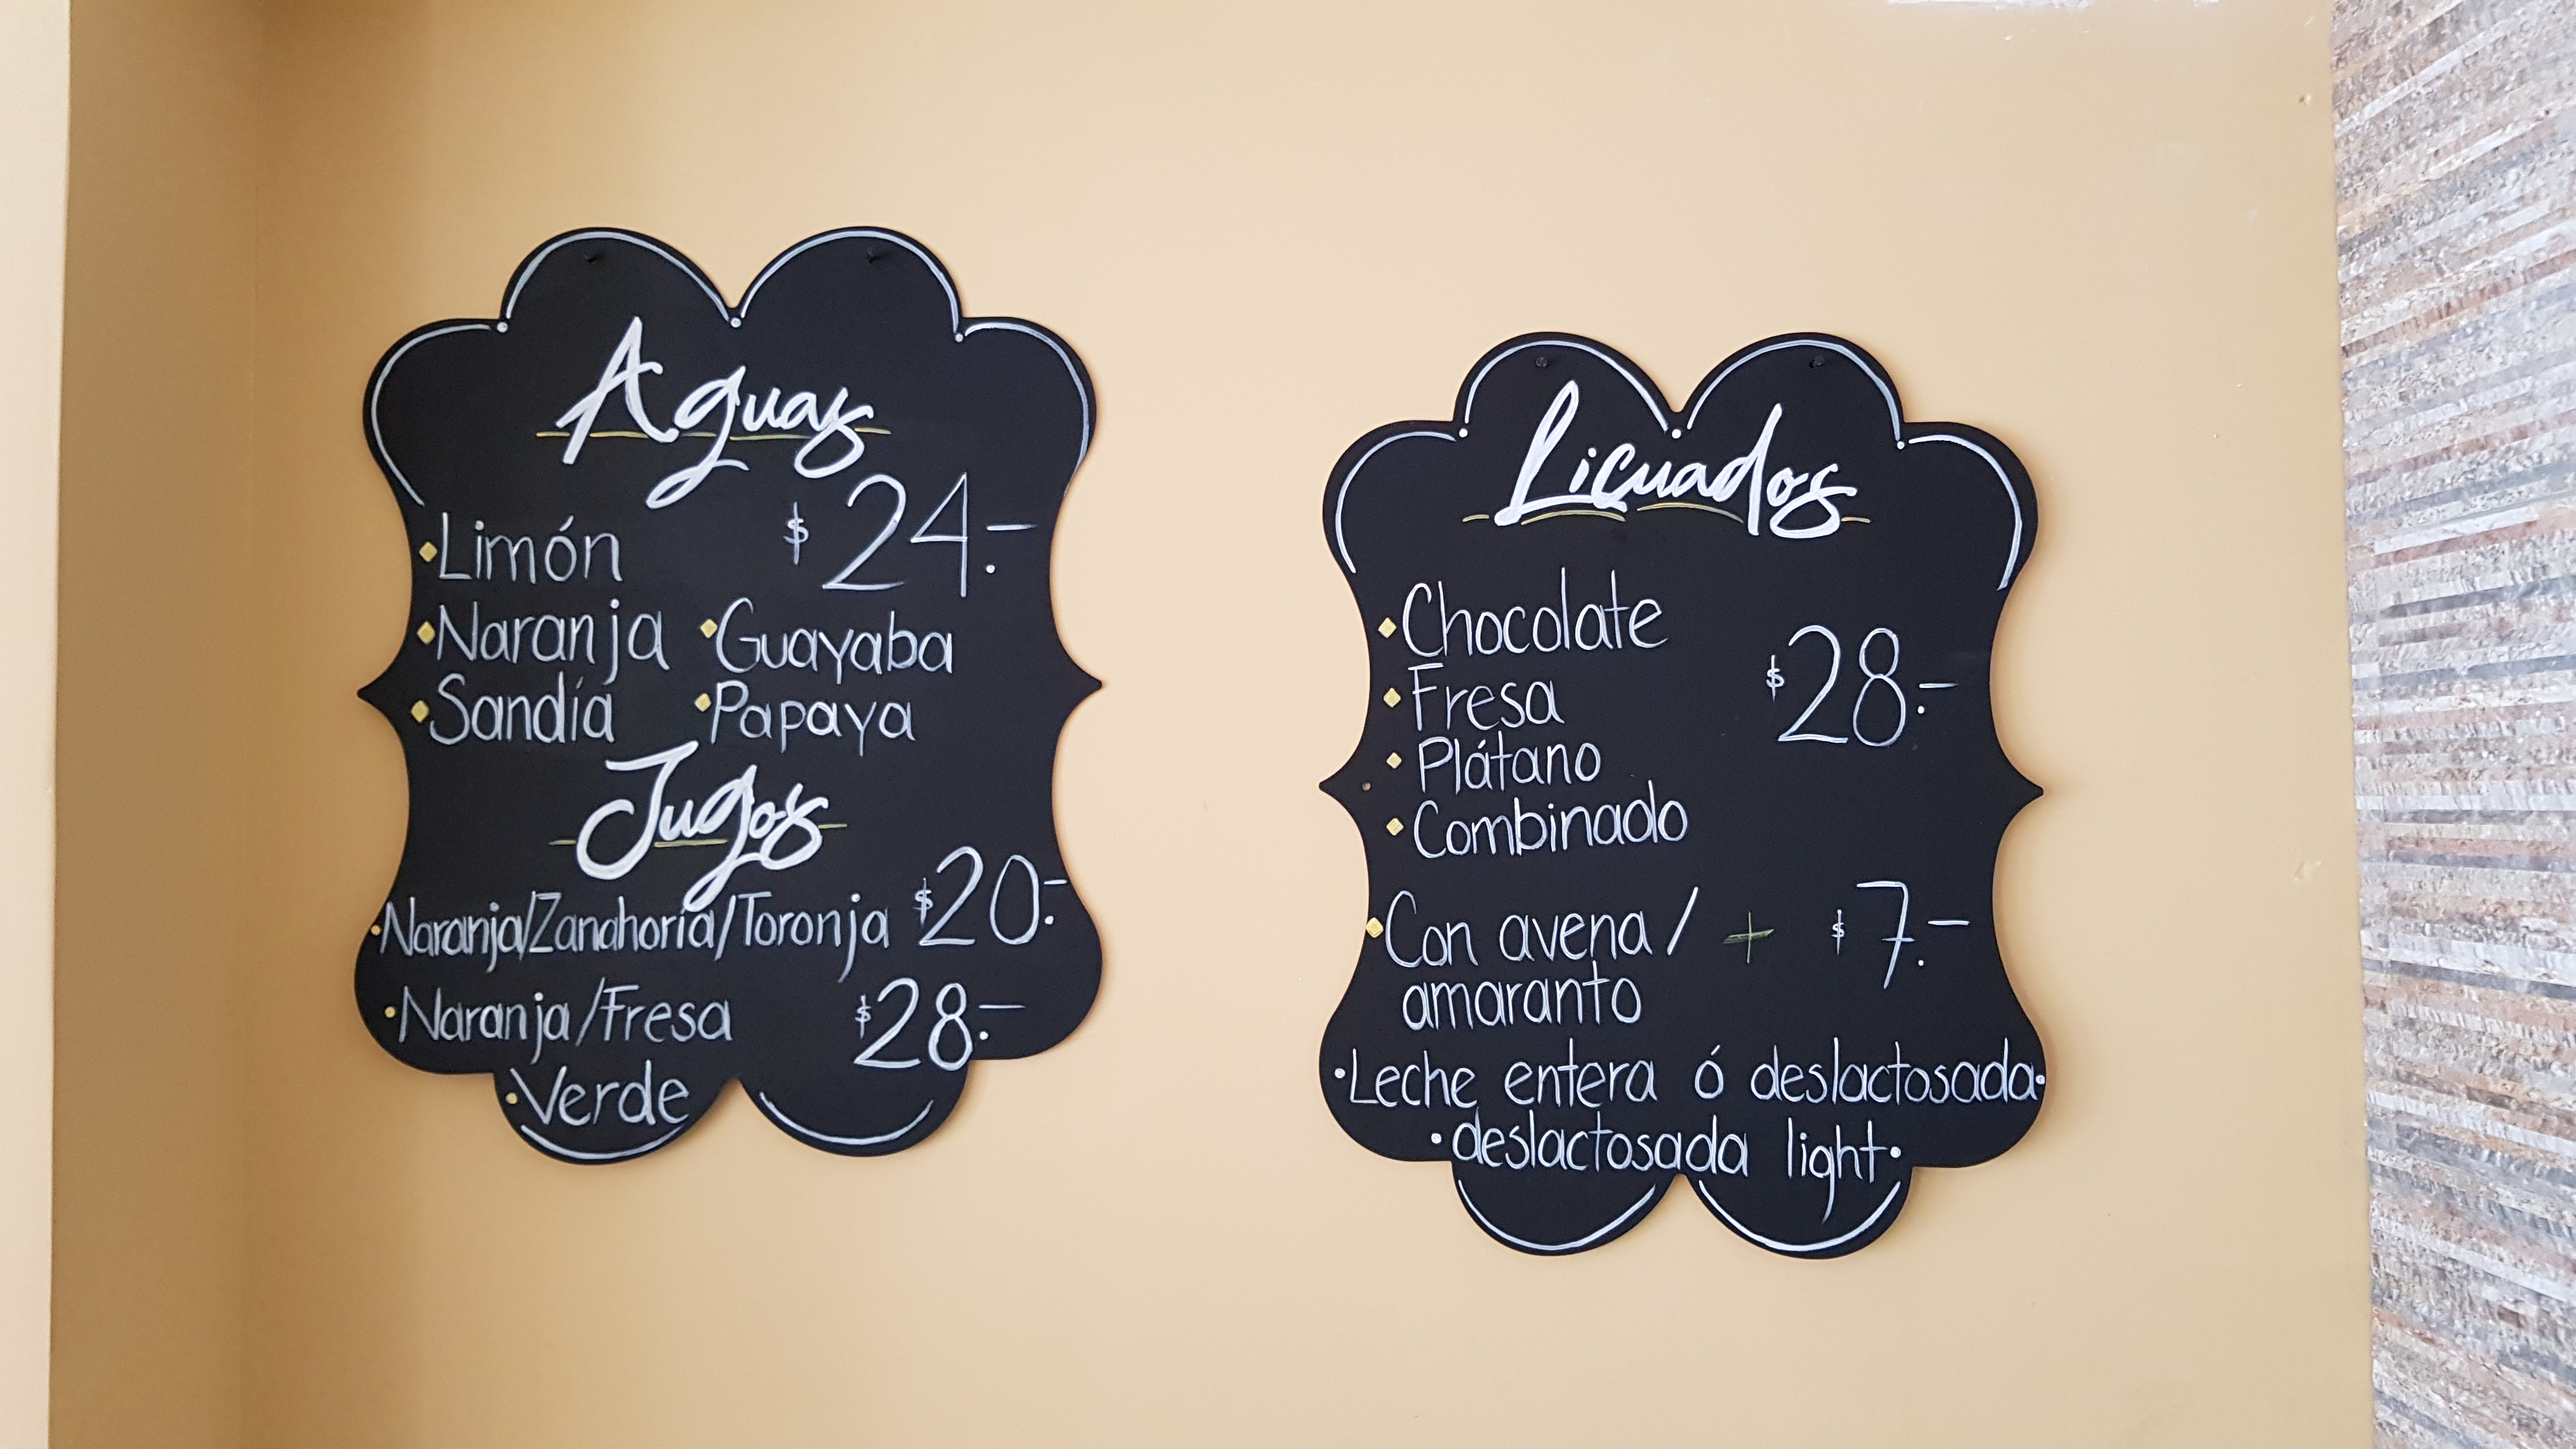 Aguas
$24.-
•Limón
•Naranja •Guayaba
•Sandía •Papaya
Jugos
•Naranja/Zanahoria/Toronja $20.-
•Naranja/Fresa $28.-
•Verde
Licuados
•Chocolate
•Fresa $28.-
•Plátano
•Combinado
•Con avena/ + $7.-
amaranto
•Leche entera ó deslactosada•
•deslactosada light•